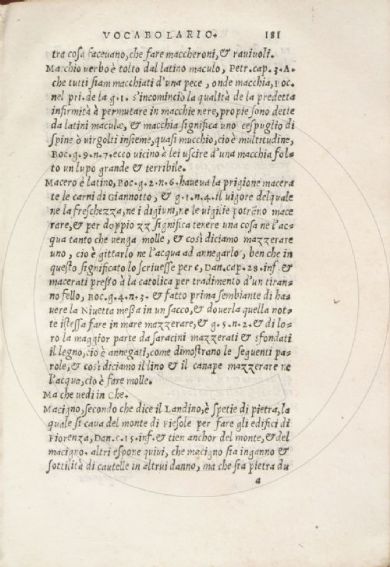 VOCABOLARIO. 181
tra cosa faceuano, che fare maccheroni, & rauiuoli.
Macchio uerbo è tolto dal latino maculo, Petr. cap. 3. A.
che tutti siam macchiati d'una pece, onde macchia, Boc.
nel pri. de la g. 1. s'incominciò la qualità de la predetta
infirmità à permutare in macchie nere, propie sono dette
da latini maculæ, & macchia significa uno cespuglio di
spine ò uirgolti insieme, quasi mucchio, cio è multitudine,
Boc. g. 9. n. 7. ecco uicino à lei uscire d'una macchia fol-
to un lupo grande & terribile.
Macero è latino, Boc. g. 2. n. 6. haueua la prigione macera
te le carni di Giannotto, & g. 1. n. 4. il uigore del quale
ne la freschezza, ne i digiuni, ne le uigilie poteano mace
rare, & per doppio zz significa tenere una cosa ne l'ac-
qua tanto che uenga molle, & così diciamo mazzerare
uno, cio è gittarlo ne l'acqua ad annegarlo, ben che in
questo significato lo scriuesse per c, Dan. cap. 28. inf. &
macerati presso à la catolica per tradimento d'un tiran-
no fello, Boc. g. 4. n. 3. & fatto prima sembiante di ha-
uere la Niuetta messa in un sacco, & douerla quella not-
te istessa fare in mare mazzerare, & g. 5. n. 2. & di lo-
ro la maggior parte da saracini mazzerati & sfondati
il legno, cio è annegati, come dimostrano le seguenti pa-
role, & così diciamo il lino & il canape mazzerare ne
l'acqua, cio è fare molle.
Ma che uedi in Che.
Macigno, secondo che dice il Landino, è spetie di pietra, la
quale si caua del monte di Fiesole per fare gli edifici di
Fiorenza, Dan. c. 15. inf. & tien anchor del monte, & del
macigno. altri espone quiui, che macigno sia inganno &
sottilità di cautelle in altrui danno, ma che sia pietra du
a